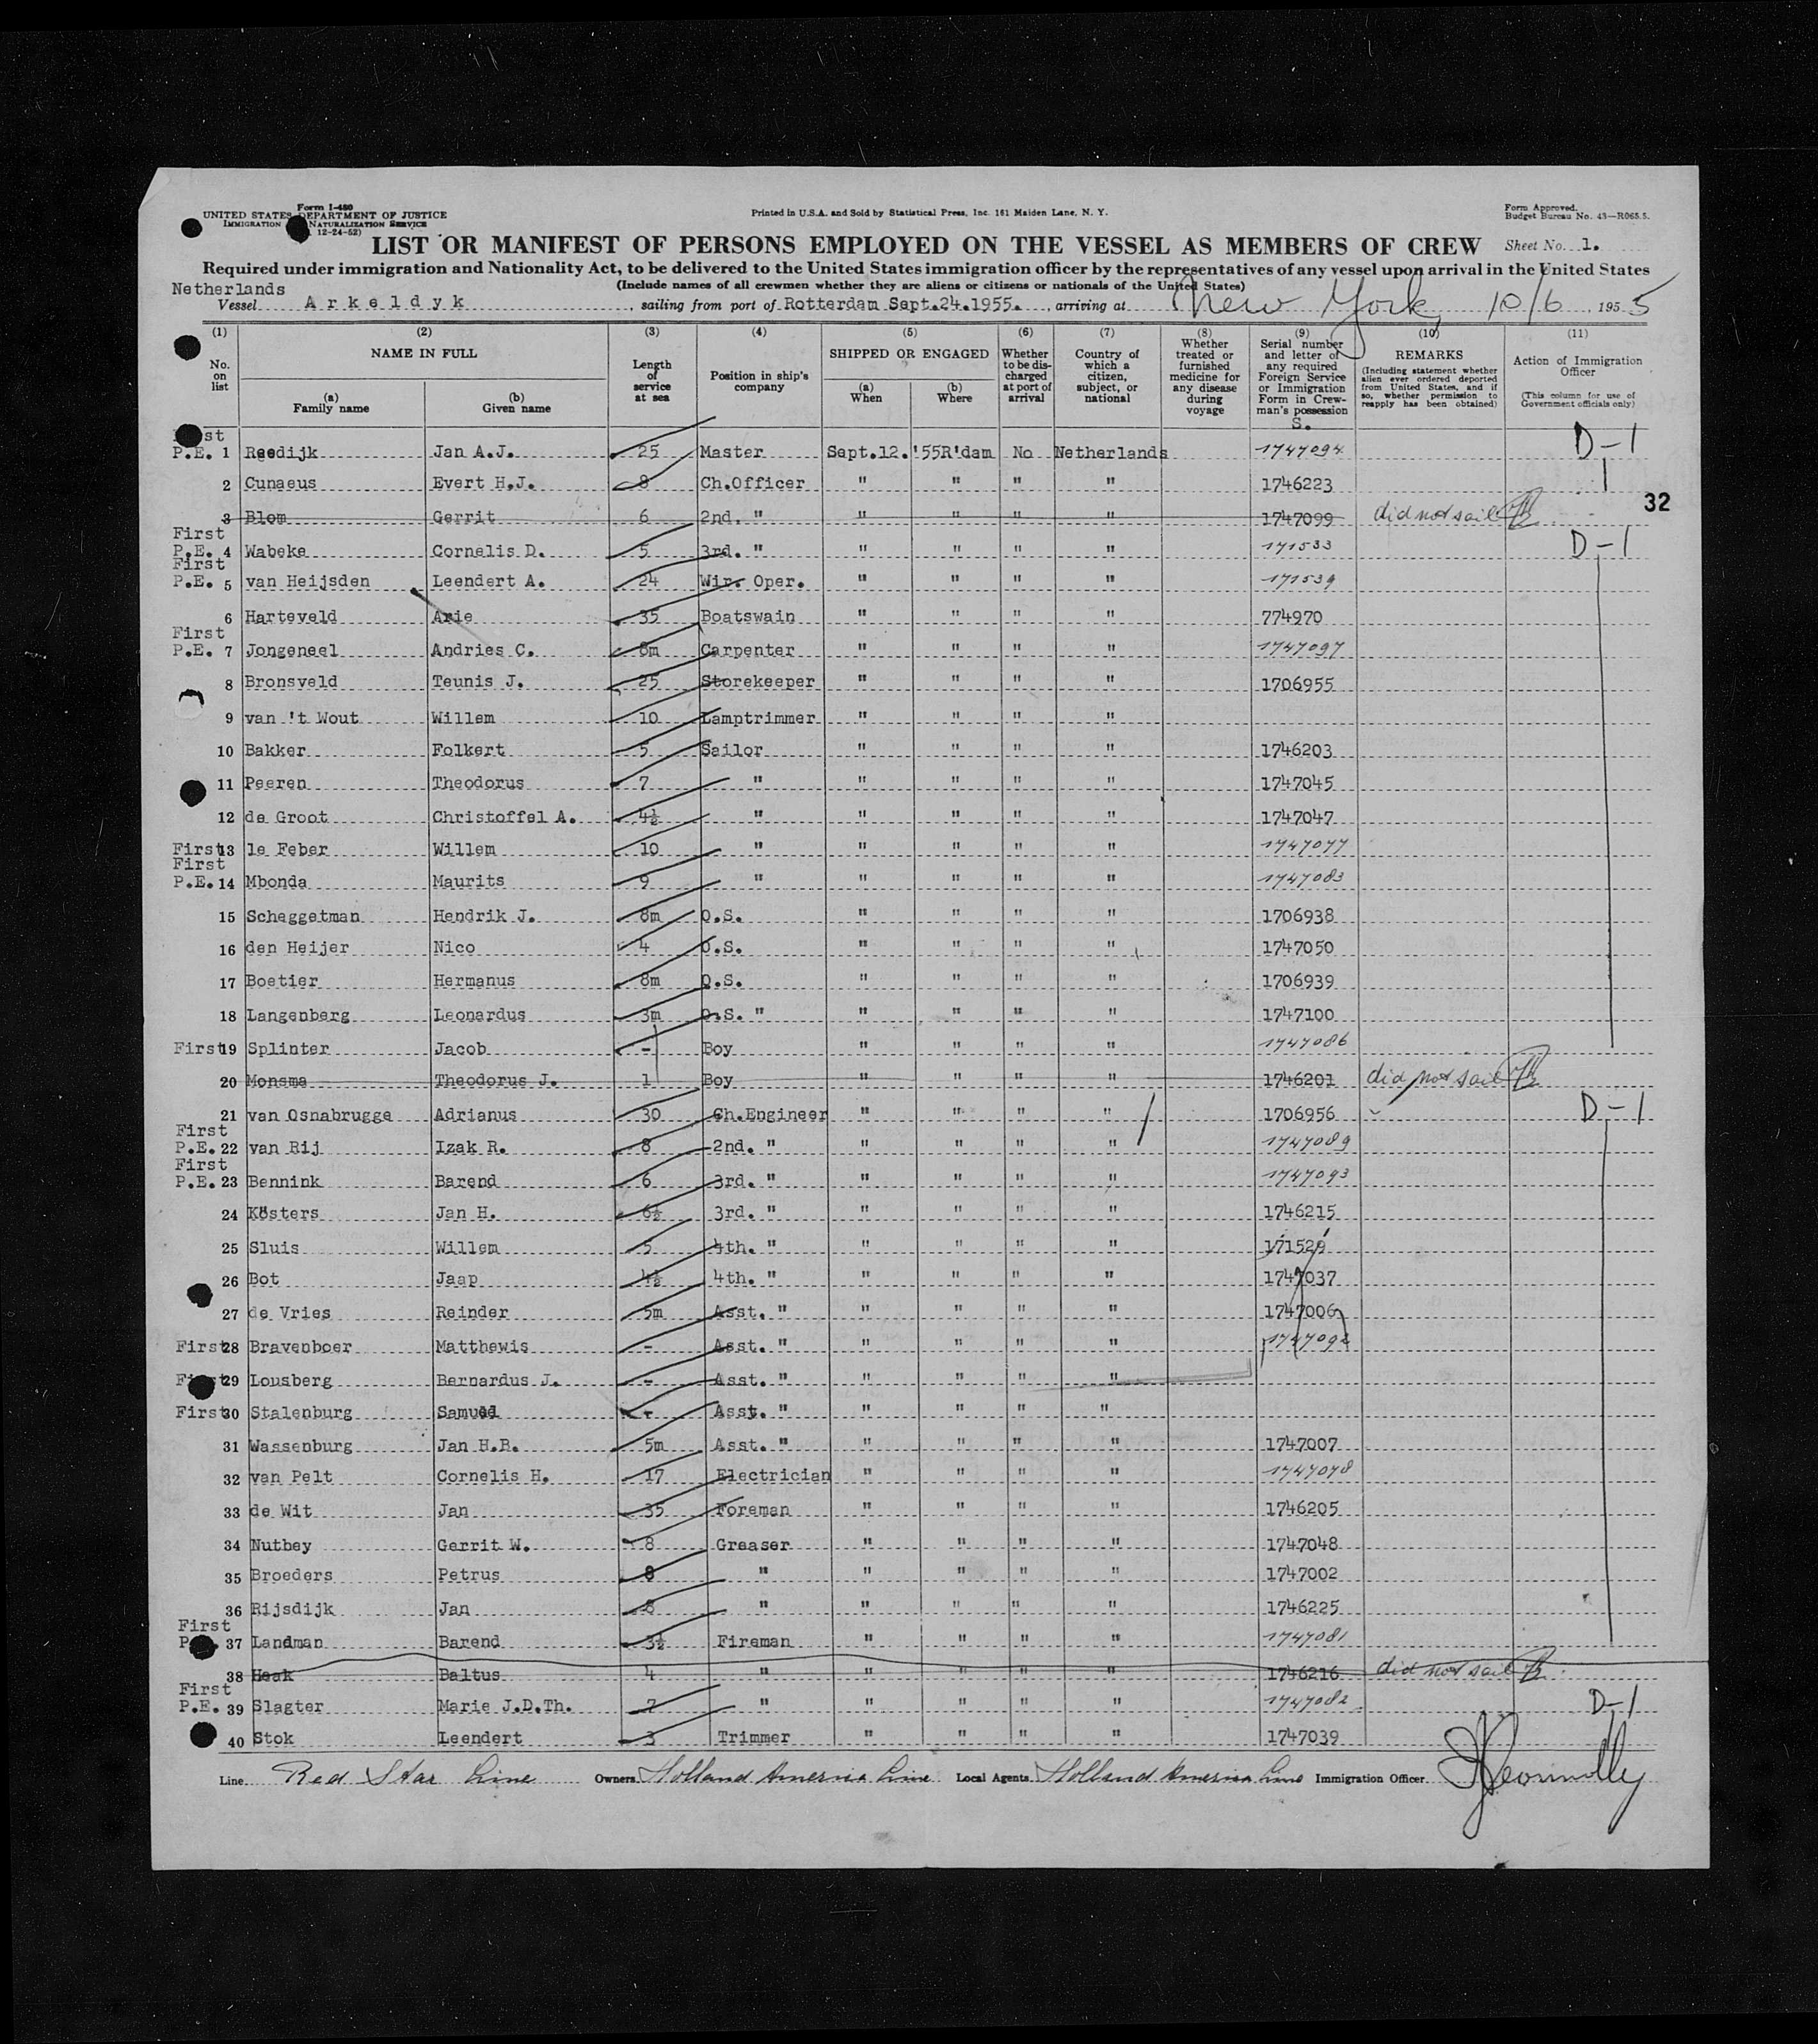 Form I-480
UNITED STATES DEPARTMENT OF JUSTICE
IMMIGRATION NATURALIZATION SERVICE
12-24-52)
Printed in U.S.A. and Sold by Statistical Press, Inc. 161 Maiden Lane, N. Y.
Form Approved.
Budget Bureau No. 43-R065.5.
LIST OR MANIFEST OF PERSONS EMPLOYED ON THE VESSEL AS MEMBERS OF CREW Sheet No. 1.
Required under immigration and Nationality Act, to be delivered to the United States immigration officer by the representatives of any vessel upon arrival in the United States
(Include names of all crewmen whether they are aliens or citizens or nationals of the United States)
Netherlands
Vessel Arkeldyk, sailing from port of Rotterdam Sept.24.1955., arriving at New York, 10/6, 1955
(1) (2) (3) (4) (5) (6) (7) (8) (9) (10) (11)
No. on list
NAME IN FULL
(a) Family name
(b) Given name
Length of service at sea
Position in ship's company
SHIPPED OR ENGAGED
(a) When
(b) Where
Whether to be discharged at port of arrival
Country of which a citizen, subject, or national
Whether treated or furnished medicine for any disease during voyage
Serial number and letter of any required Foreign Service or Immigration Form in Crewman's possession
S.
REMARKS
(Including statement whether alien ever ordered deported from United States, and if so, whether permission to reapply has been obtained)
Action of Immigration Officer
(This column for use of Government officials only)
P.E. 1 Reedijk Jan A.J. 25 Master Sept.12.'55 R'dam No Netherlands 1747094 D-1
2 Cunaeus Evert H.J. 8 Ch.Officer " " " " 1746223
32
3 Blom Gerrit 6 2nd. " " " " " 1747099 did not sail
First P.E. 4 Wabeke Cornelis D. 5 3rd. " " " " " 171533 D-1
First P.E. 5 van Heijsden Leendert A. 24 Wir. Oper. " " " " 171539
6 Harteveld Arie 35 Boatswain " " " " 774970
First P.E. 7 Jongeneel Andries C. 8m Carpenter " " " " 1747097
8 Bronsveld Teunis J. 25 Storekeeper " " " " 1706955
9 van 't Wout Willem 10 Lamptrimmer " " " "
10 Bakker Folkert 5 Sailor " " " " 1746203
11 Peeren Theodorus 7 " " " " " 1747045
12 de Groot Christoffel A. 4½ " " " " " 1747047
First 13 le Feber Willem 10 " " " " " 1747077
First P.E. 14 Mbonda Maurits 9 " " " " " 1747083
15 Scheggetman Hendrik J. 8m O.S. " " " " 1706938
16 den Heijer Nico 4 O.S. " " " " 1747050
17 Boetier Hermanus 8m O.S. " " " " 1706939
18 Langenberg Leonardus 3m O.S. " " " " " 1747100
First 19 Splinter Jacob - Boy " " " " 1747086
20 Monsma Theodorus J. 1 Boy " " " " 1746201 did not sail
21 van Osnabrugge Adrianus 30 Ch.Engineer " " " " 1706956 D-1
First P.E. 22 van Rij Izak R. 8 2nd. " " " " " 1747089
First P.E. 23 Bennink Barend 6 3rd. " " " " " 1747093
24 Kösters Jan H. 6½ 3rd. " " " " " 1746215
25 Sluis Willem 5 4th. " " " " " 171529
26 Bot Jaap 4½ 4th. " " " " " 1747037
27 de Vries Reinder 5m Asst. " " " " " 1747006
First 28 Bravenboer Matthewis - Asst. " " " " " 1747092
29 Lousberg Bernardus J. - Asst. " " " " "
First 30 Stalenburg Samuel - Asst. " " " " "
31 Wassenburg Jan H.B. 5m Asst. " " " " " 1747007
32 van Pelt Cornelis H. 17 Electrician " " " " 1747078
33 de Wit Jan 35 Foreman " " " " 1746205
34 Nutbey Gerrit W. 8 Greaser " " " " 1747048
35 Broeders Petrus 8 " " " " " 1747002
36 Rijsdijk Jan 8 " " " " " 1746225
First 37 Landman Barend 3½ Fireman " " " " 1747081
38 Haak Baltus 4 " " " " " 1746216 did not sail
First P.E. 39 Slagter Marie J.D.Th. 7 " " " " " 1747082 D-1
40 Stok Leendert 3 Trimmer " " " " 1747039
Line Red Star Line Owners Holland America Line Local Agents Holland America Line Immigration Officer